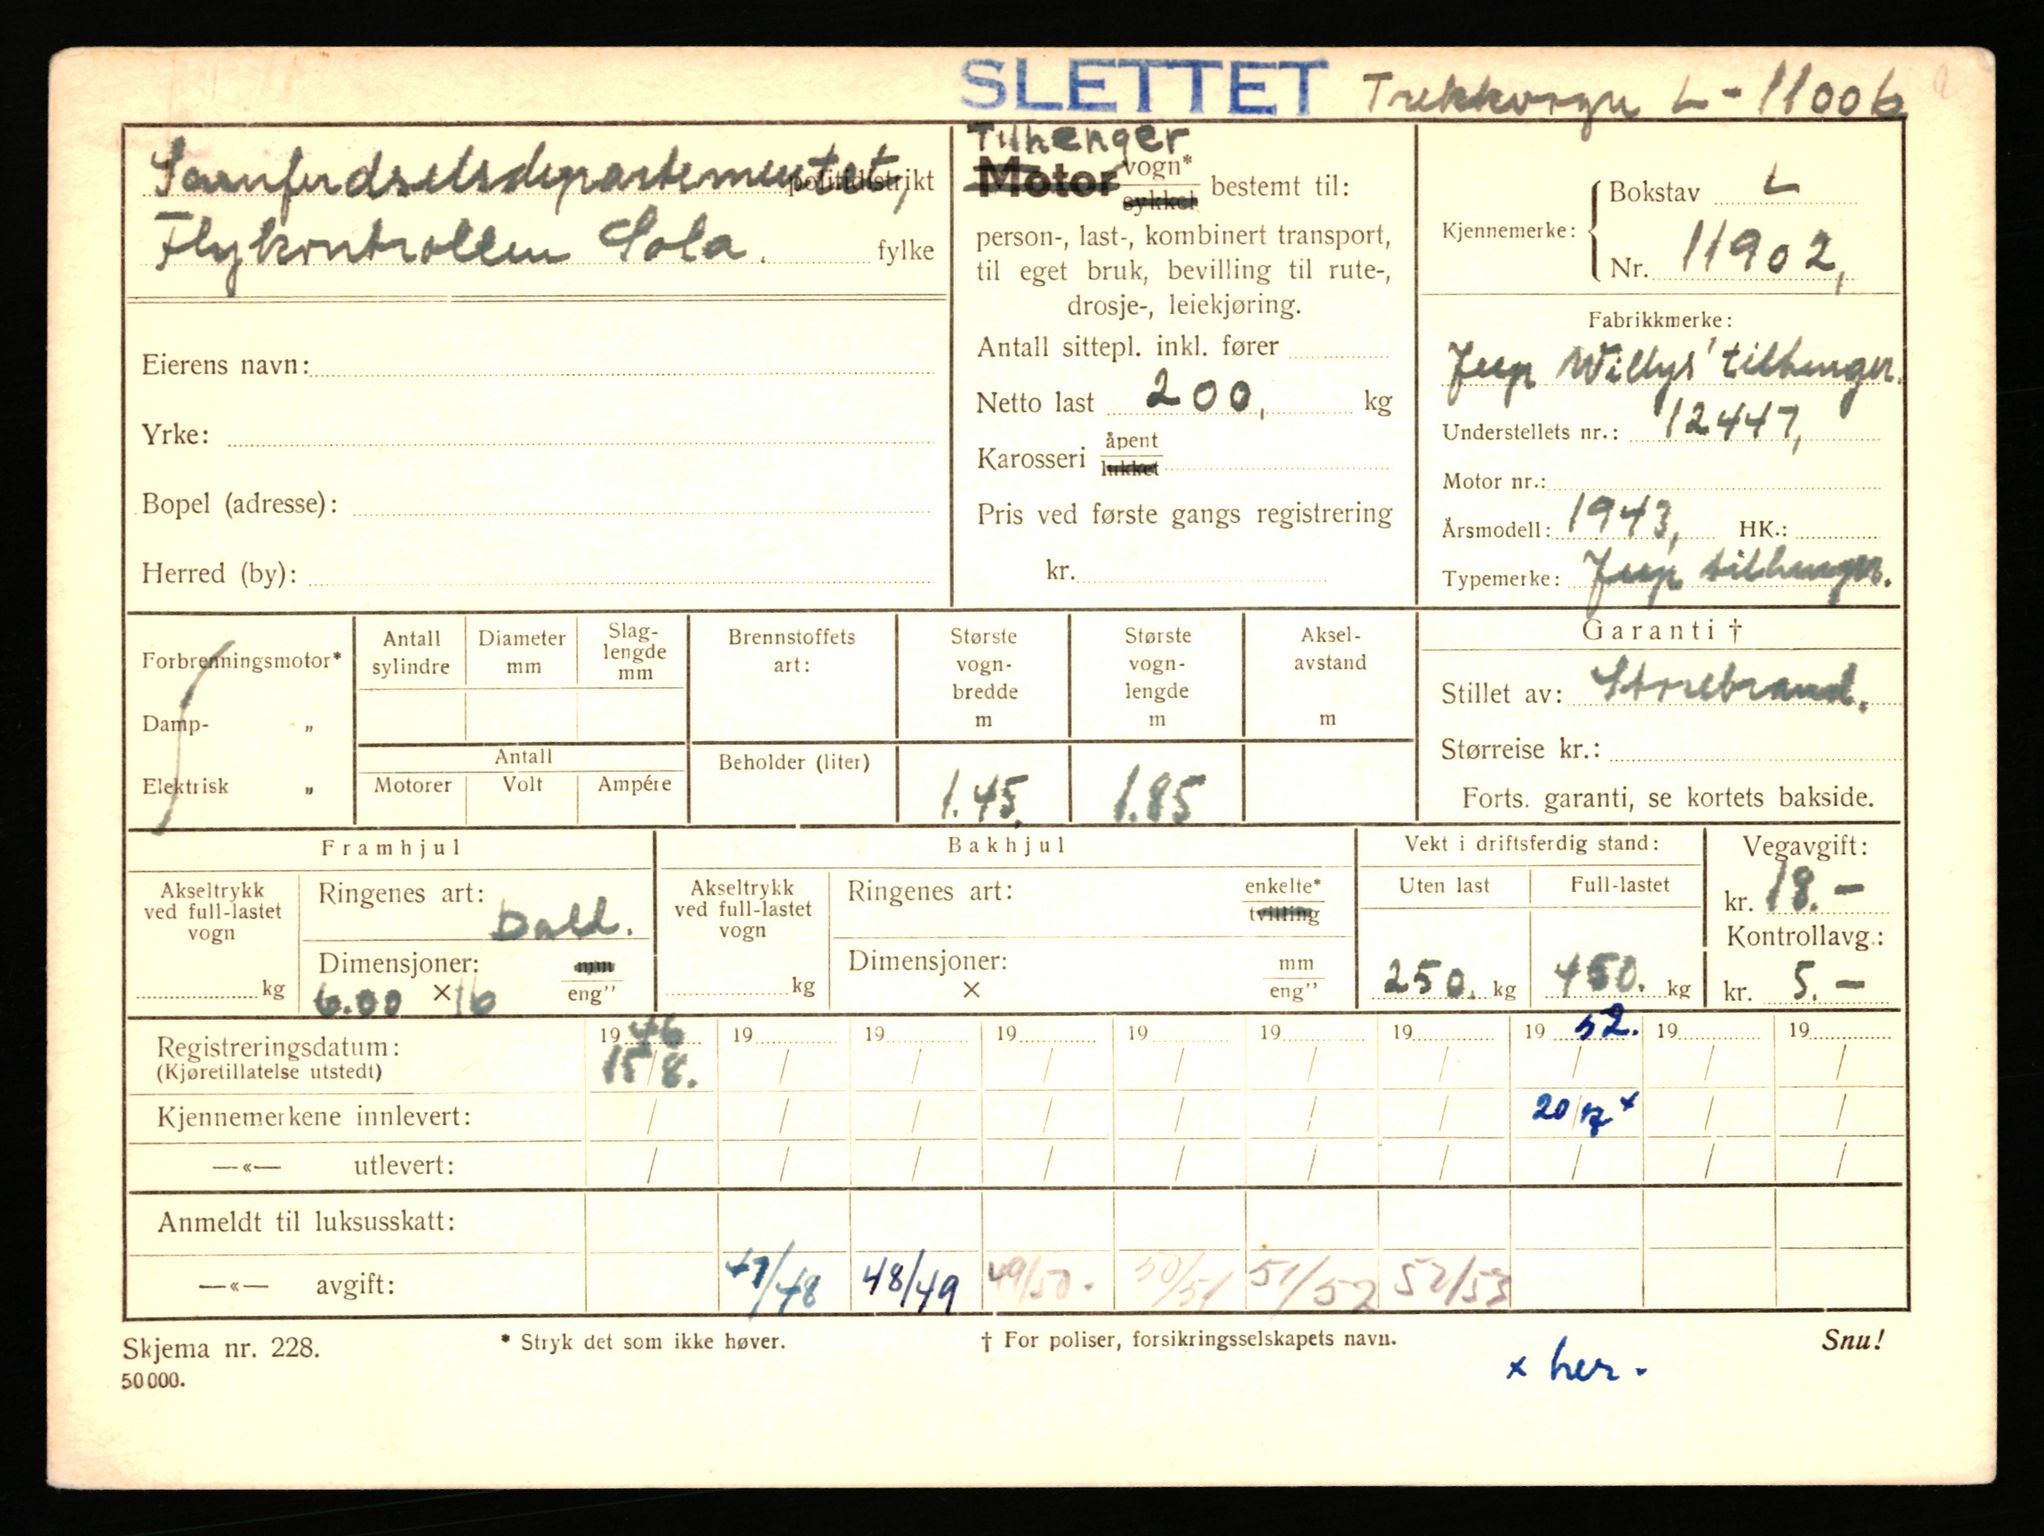 SLETTET Trekkvogn L-11006
Samferdselsdepartementet, politidistrikt
Flykontrollen Sola. fylke
Eierens navn:
Yrke:
Bopel (adresse):
Herred (by):
Tilhenger
Motor vogn* sykkel bestemt til:
person-, last-, kombinert transport,
til eget bruk, bevilling til rute-,
drosje-, leiekjøring.
Antall sittepl. inkl. fører
Netto last 200, kg
Karosseri åpent lukket
Pris ved første gangs registrering
kr.
Kjennemerke: Bokstav L
Nr. 11902,
Fabrikkmerke:
Jeep Willys' tilhenger.
Understellets nr.: 12447,
Motor nr.:
Årsmodell: 1943, HK.:
Typemerke: Jeep tilhenger.
Forbrenningsmotor*
Damp- „
Elektrisk „
Antall sylindre
Diameter mm
Slag-lengde mm
Antall
Motorer Volt Ampére
Brennstoffets art:
Beholder (liter)
Største vogn-bredde m
1.45.
Største vogn-lengde m
1.85
Aksel-avstand m
Garanti †
Stillet av: Storebrand.
Størreise kr.:
Forts. garanti, se kortets bakside.
Framhjul
Akseltrykk ved full-lastet vogn
kg
Ringenes art: Dald.
Dimensjoner: mm
6.00 × 16 eng"
Bakhjul
Akseltrykk ved full-lastet vogn
kg
Ringenes art: enkelte* tvilling
Dimensjoner: mm
× eng"
Vekt i driftsferdig stand:
Uten last Full-lastet
250. kg 450. kg
Vegavgift:
kr. 18.-
Kontrollavg.:
kr. 5.-
Registreringsdatum: 19 46 19 19 19 19 19 19 19 52. 19 19
(Kjøretillatelse utstedt) 15/8. / / / / / / / / /
Kjennemerkene innlevert: / / / / / / / 20/ x / /
—«— utlevert: / / / / / / / / / /
Anmeldt til luksusskatt:
—«— avgift: 47/48 48/49 49/50. 50/51 51/52 52/53
Skjema nr. 228. * Stryk det som ikke høver. † For poliser, forsikringsselskapets navn. Snu!
50 000.
x her.